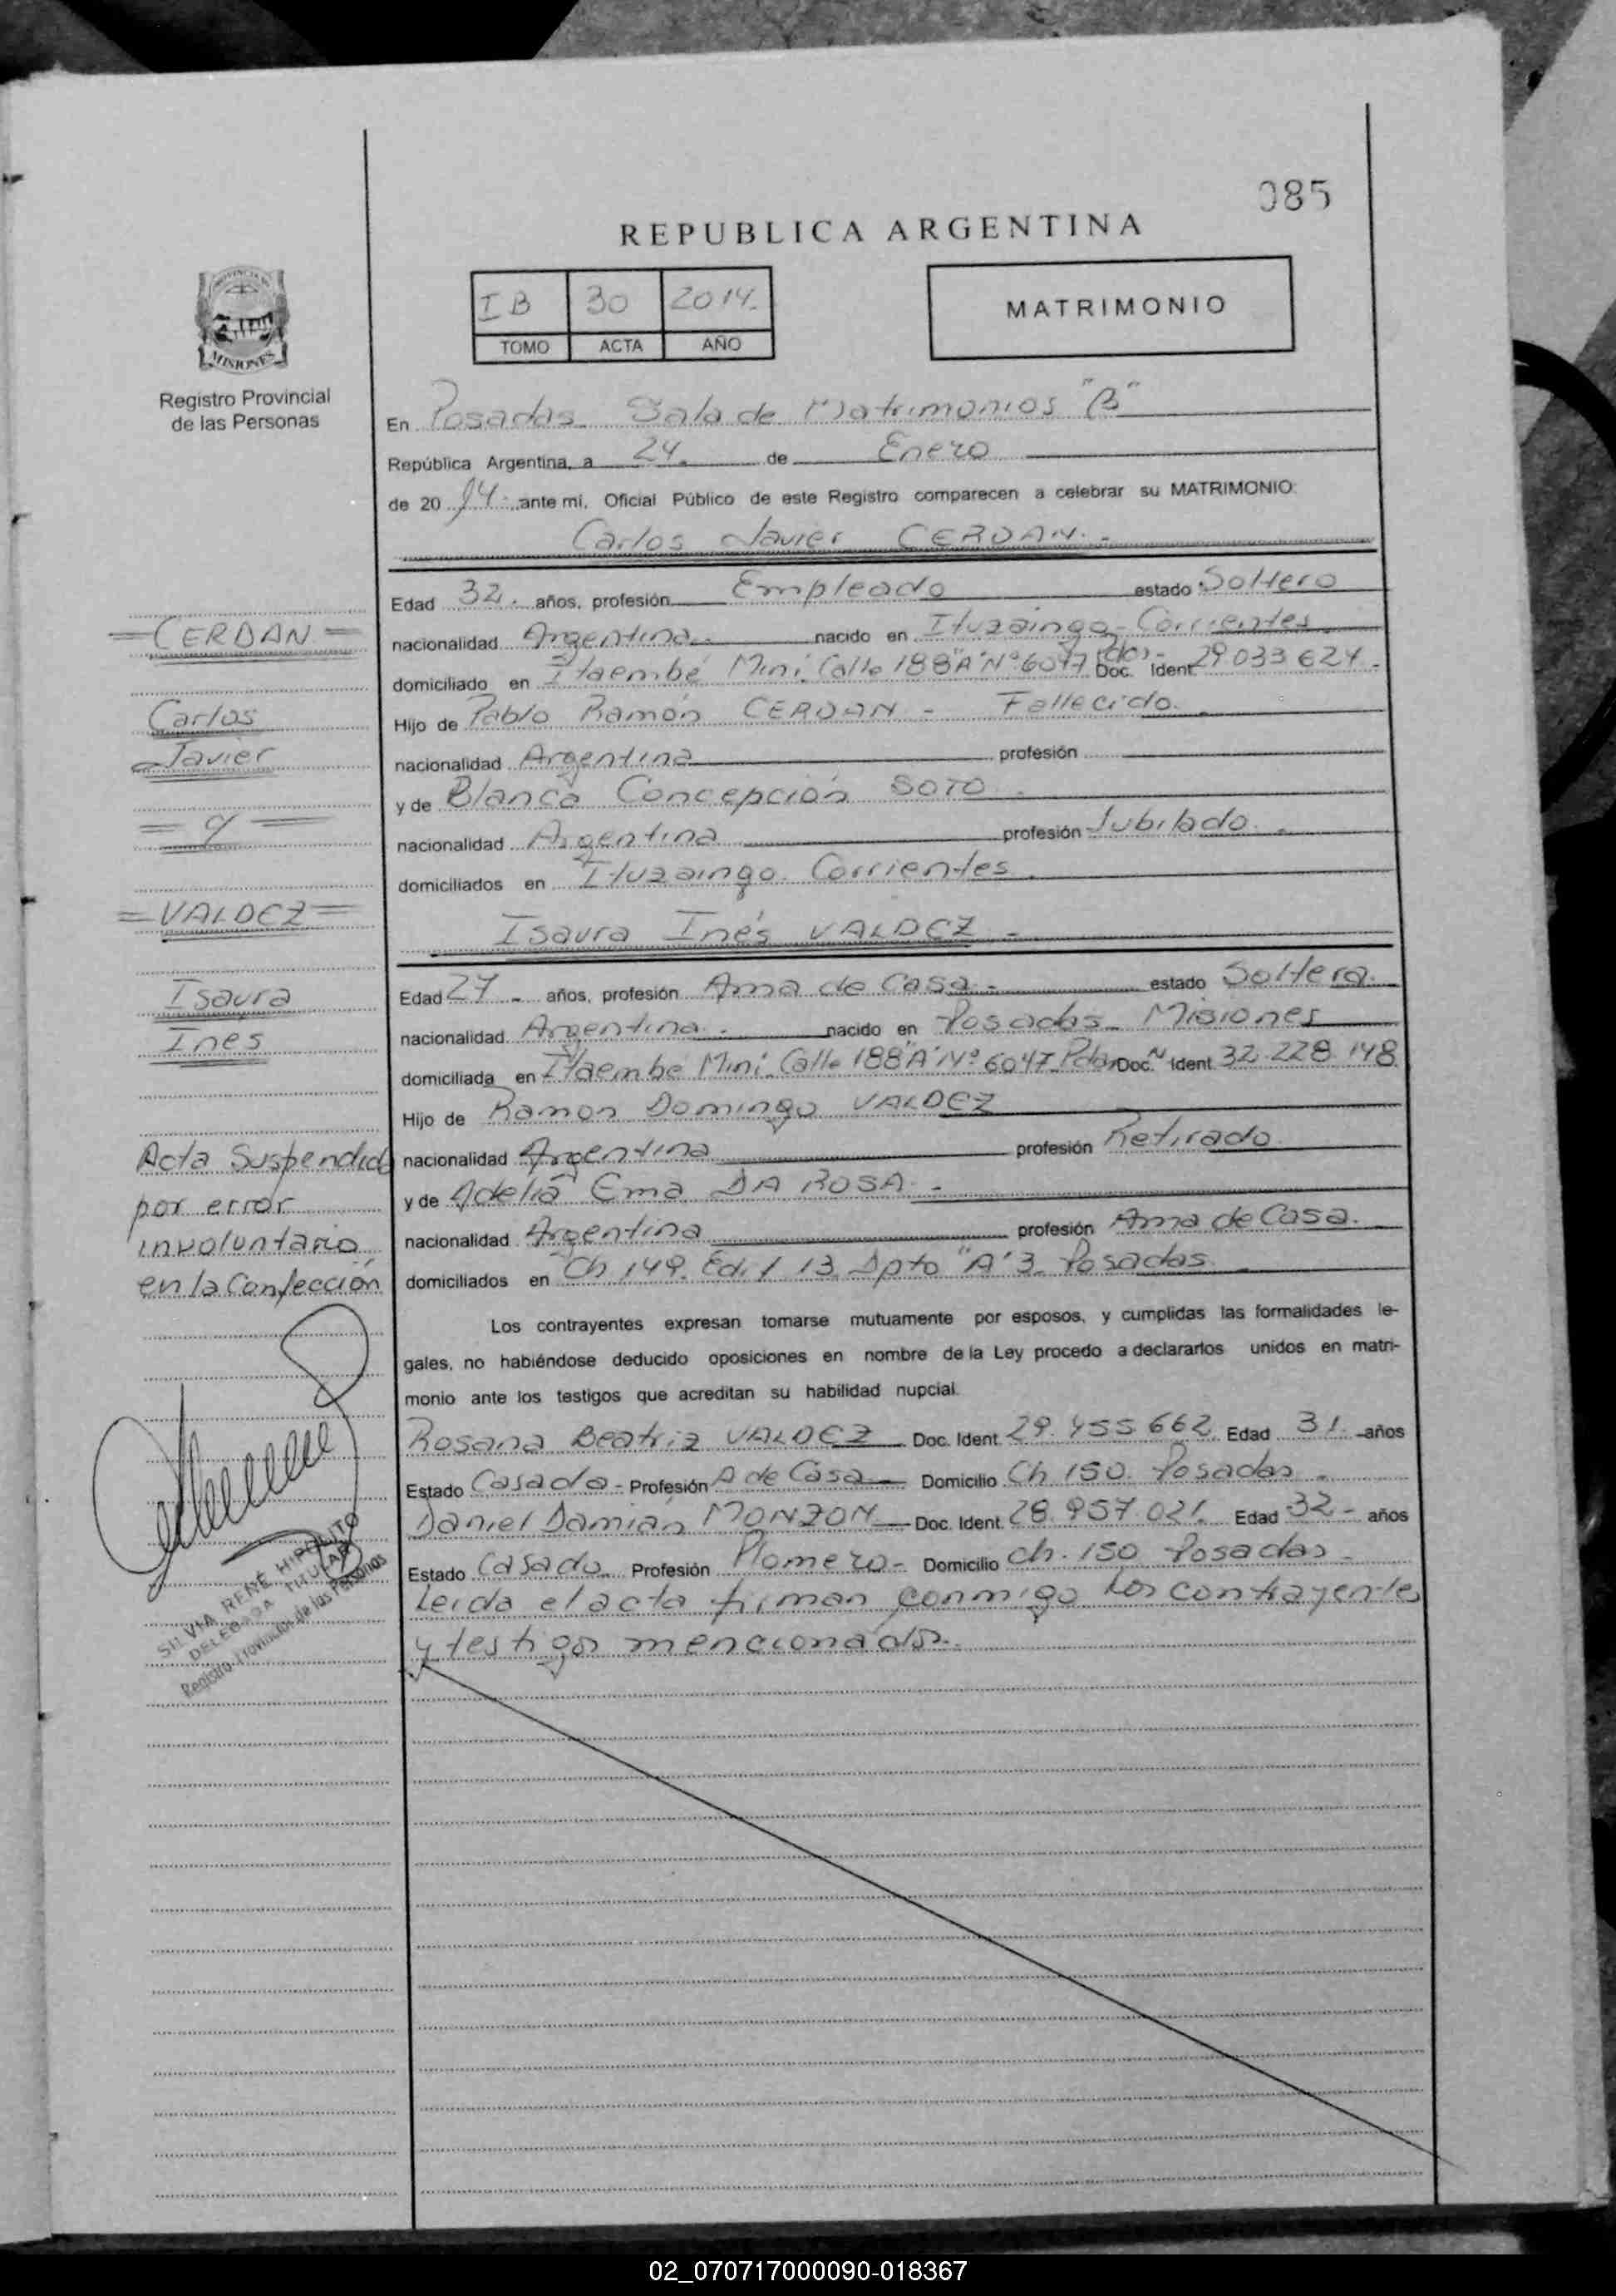 085
REPUBLICA ARGENTINA
PROVINCIA DE
MISIONES
Registro Provincial
de las Personas
I B 30 2014.
TOMO ACTA AÑO
MATRIMONIO
En Posadas Sala de Matrimonios "B"
República Argentina, a 24. de Enero
de 20 14. ante mi, Oficial Público de este Registro comparecen a celebrar su MATRIMONIO:
Carlos Javier CERDAN.-
Edad 32. años, profesión Empleado estado Soltero
nacionalidad Argentina. nacido en Ituzaingo-Corrientes
domiciliado en Itaembé Mini. Calle 188"A" Nº 6047 Pdas- Doc. Ident. 29 033 624.
Hijo de Pablo Ramón CERDAN - Fallecido.
nacionalidad Argentina profesión
y de Blanca Concepción SOTO
nacionalidad Argentina profesión Jubilado.
domiciliados en Ituzaingo. Corrientes.
Isaura Inés VALDEZ -
Edad 27 - años, profesión Ama de Casa.- estado Soltera.
nacionalidad Argentina. nacido en Posadas Misiones
domiciliada en Itaembé Mini. Calle 188"A" Nº 6047 Pdas Doc. N Ident. 32.228.148
Hijo de Ramon Domingo VALDEZ
nacionalidad Argentina profesión Retirado
y de Adelia Ema DA ROSA.-
nacionalidad Argentina profesión Ama de Casa.
domiciliados en Ch 149. Edif 13. Dpto "A" 3. Posadas.
Los contrayentes expresan tomarse mutuamente por esposos, y cumplidas las formalidades le-
gales, no habiéndose deducido oposiciones en nombre de la Ley procedo a declararlos unidos en matri-
monio ante los testigos que acreditan su habilidad nupcial.
Rosana Beatriz VALDEZ Doc. Ident. 29.455 662. Edad 31. años
Estado Casada- Profesión A de Casa- Domicilio Ch 150. Posadas.
Daniel Damián MONZON Doc. Ident. 28.957.021. Edad 32- años
Estado Casado Profesión Plomero- Domicilio Ch. 150 Posadas-
Leida el acta firman conmigo los contrayentes
y testigos mencionados.
=CERDAN=
Carlos
Javier
= y =
=VALDEZ=
Isaura
Ines
Acta Suspendida
por error
involuntario
en la Confección
SILVIA RENE HIPOLITO
DELEGADA TITULAR
Registro Provincial de las Personas
02_070717000090-018367